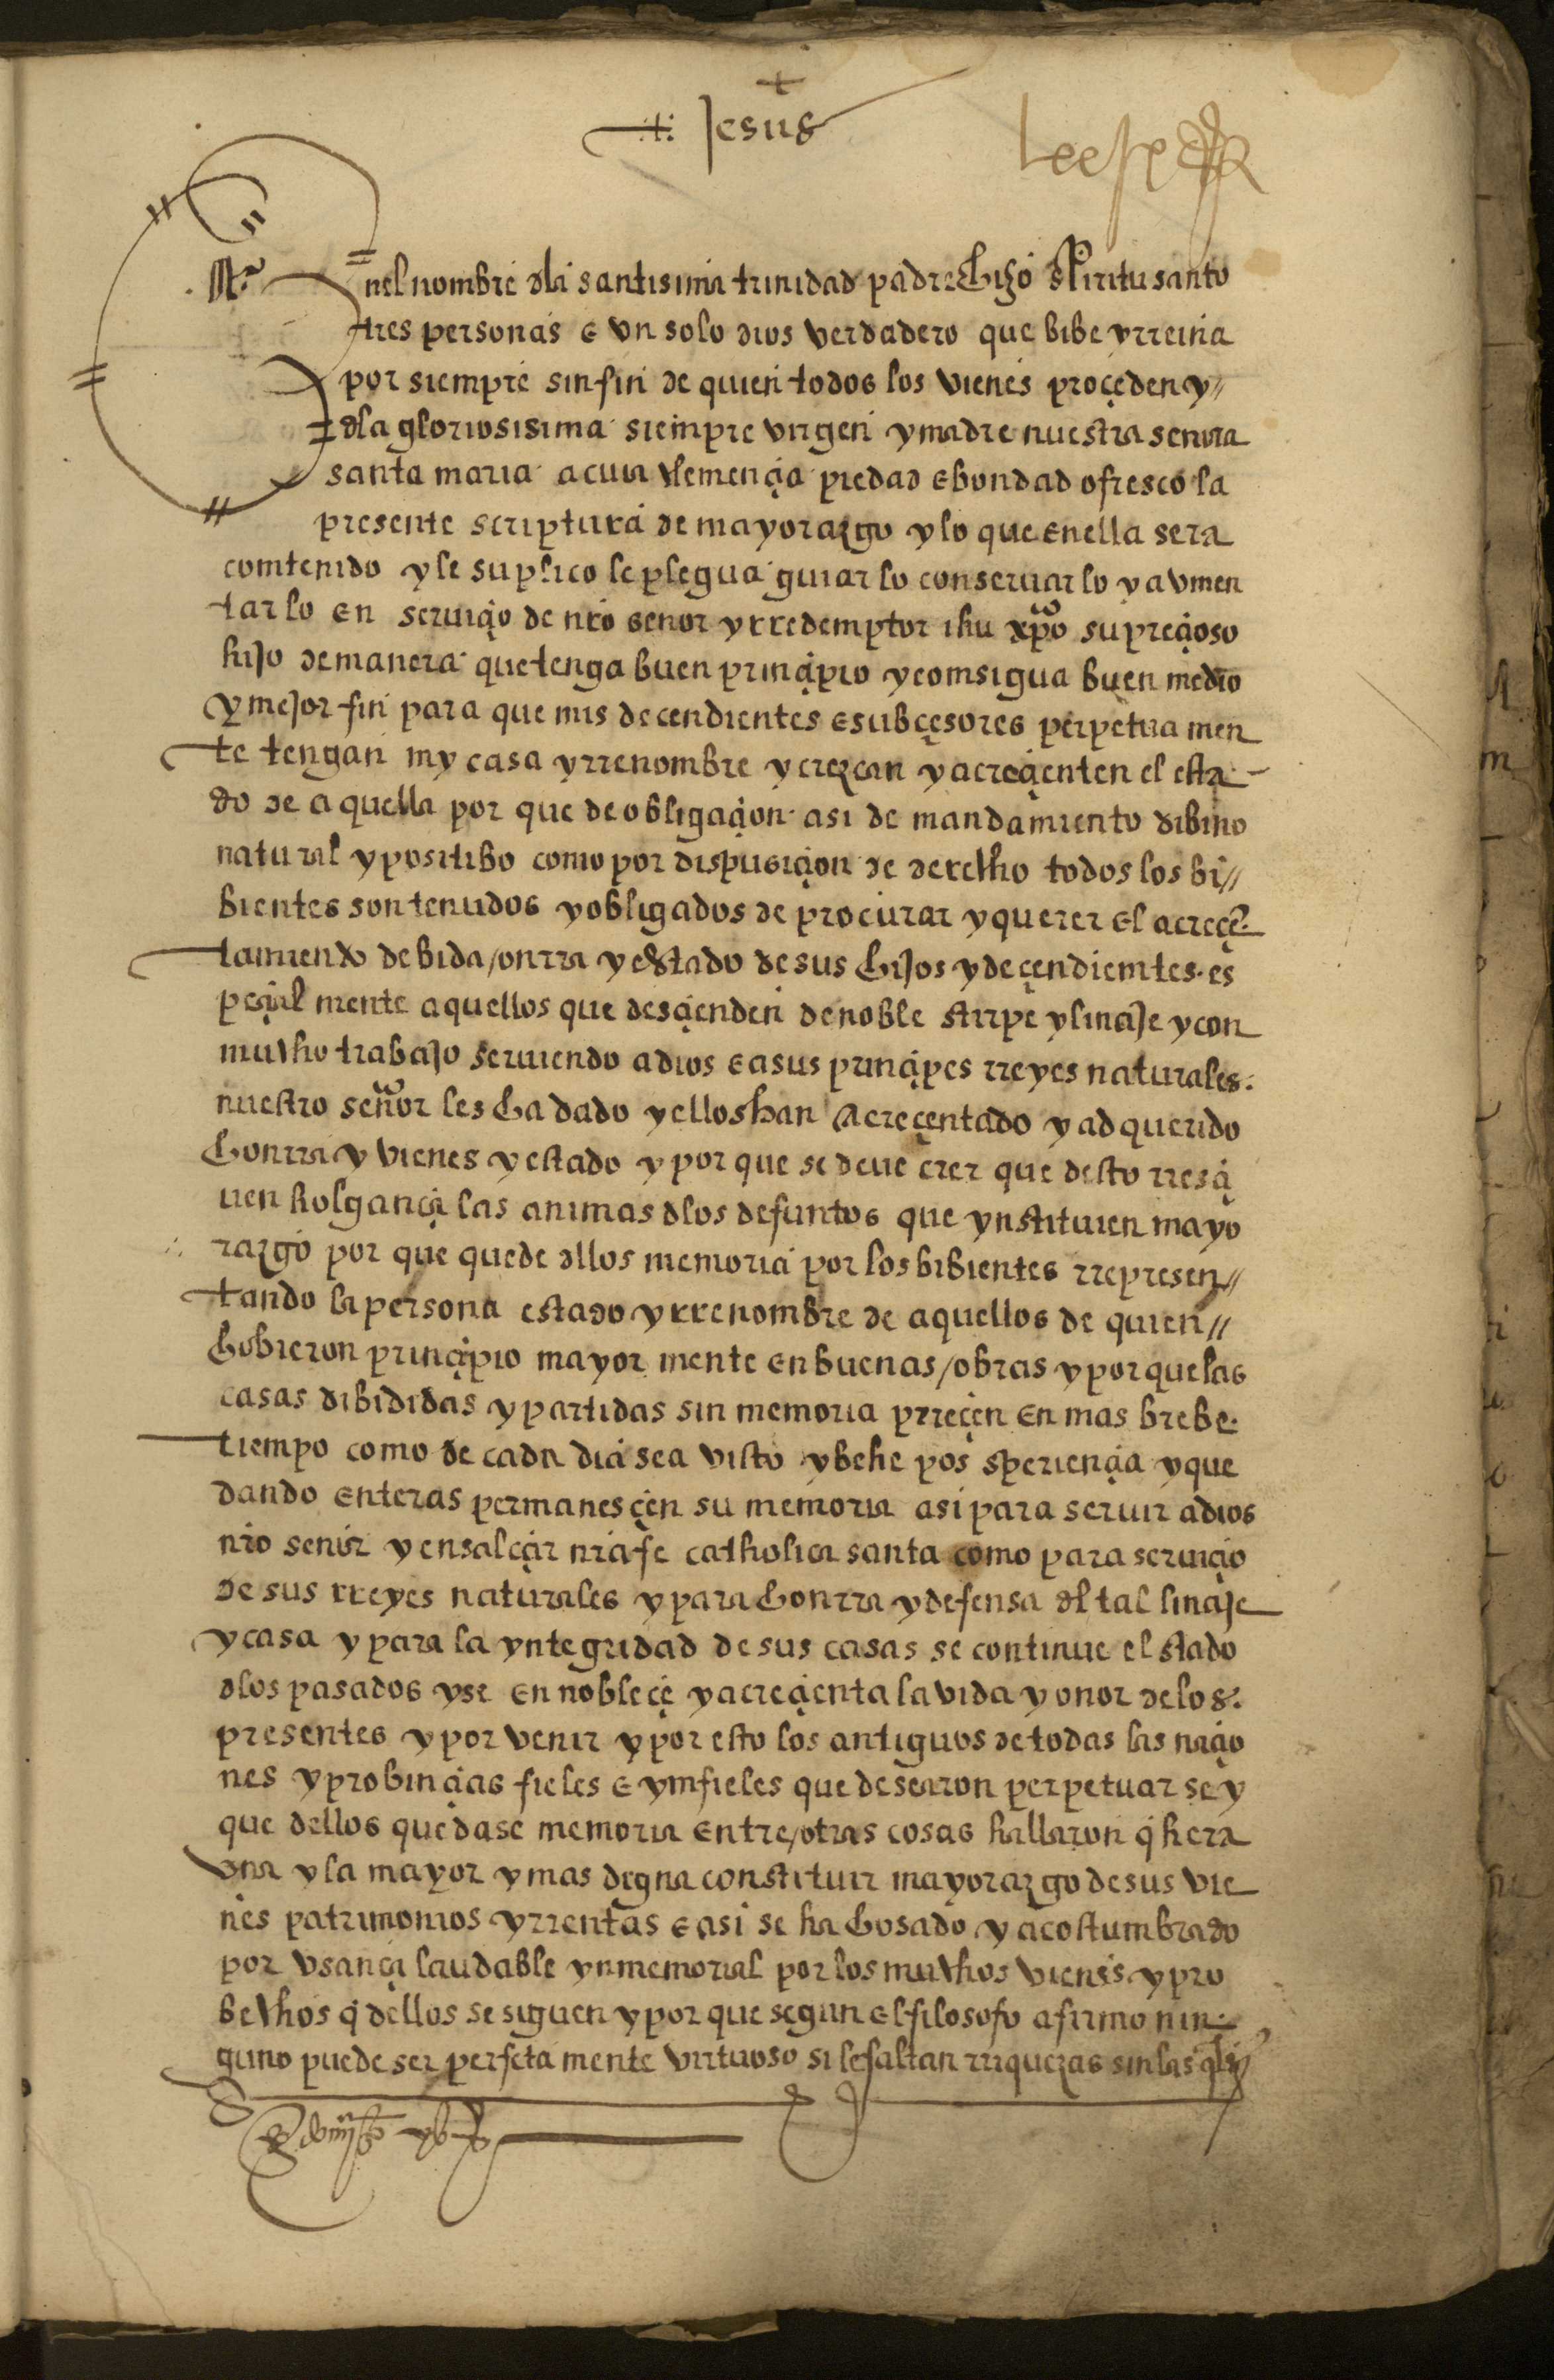 + Jesus
Enel nombre dla santisima trinidad padre e hijo spiritu santo
tres personas e vn solo dios verdadero que bibe y rreina
por siempre sin fin de quien todos los vienes proçeden y
dla gloriosisima siempre virgen y madre nuestra senora
santa maria a cuia clemençia piedad e bondad ofresco la
presente scriptura de mayorazgo y lo que en ella sera
comtenido y le suplico le plegua guiar lo conseruar lo y avmen
tar lo en seruiçio de nro señor y rredemptor ihu xpo su preçioso
hijo de manera que tenga buen prinçipio y comsigua buen medio
y mejor fin para que mis decendientes e subçesores perpetua men
te tengan my casa y rrenombre y crezcan y acreçienten el esta
do de aquella por que de obligaçion asi de mandamiento dibino
natural y positibo como por dispusiçion de derecho todos los bi
bientes son tenudos y obligados de procurar y querer el acreçe
tamiendo de bida / onrra y estado de sus hijos y deçendiemtes es
peçial mente aquellos que desçienden de noble stirpe y linaje y con
mucho trabajo seruiendo a dios e a sus prinçipes rreyes naturales
nuestro señor les ha dado y ellos han acreçentado y adquerido
honrra y vienes y estado y por que se deue crer que desto rresçi
uen holgança las animas dlos defuntos que ynstituien mayo
razgo por que quede dllos memoria por los bibientes rrepresen
tando la persona estado y rrenombre de aquellos de quien
hobieron prinçipio mayor mente en buenas / obras y por que las
casas dibididas y partidas sin memoria pereçen en mas brebe
tiempo como de cada dia se a visto y behe por speriençia y que
dando enteras permanesçen su memoria asi para seruir a dios
nro senor y ensalçar nra fe catholica santa como para seruiçio
de sus rreyes naturales y para honrra y defensa dl tal linaje
y casa y para la yntegridad de sus casas se continue el stado
dlos pasados y se en nobleçe y acreçienta la vida y onor de los
presentes y por venir y por esto los antiguos de todas las naçio
nes y probinçias fieles e ymfieles que desearon perpetuar se y
que dellos quedase memoria entre / otras cosas hallaron q hera
vna y la mayor y mas degna constituir mayorazgo de sus vie
nes patrimonios y rrentas e asi se ha husado y acostumbrado
por vsança laudable ynmemorial por los muchos vienes y pro
bechos q dellos se siguen y por que segun el filosofo afirmo nin
guno puede ser perfeta mente virtuoso si le faltan rriquezas sin las qls